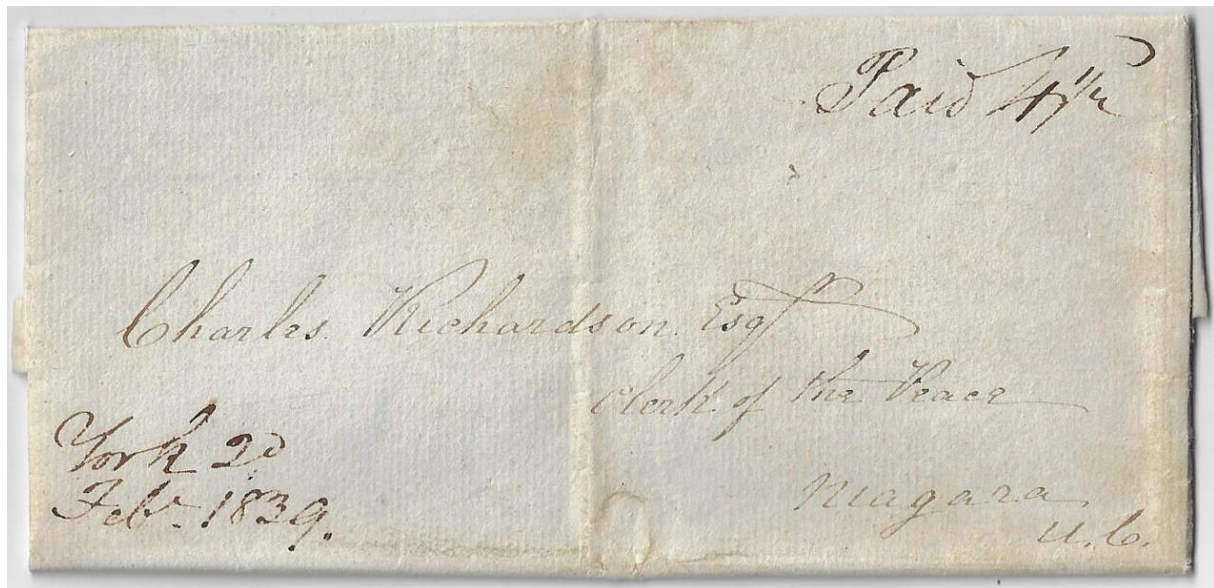 Paid 4 1/2
Charles Richardson Esqr
Clerk of the Peace
Niagara
U.C.
York 2d
Feby 1839.